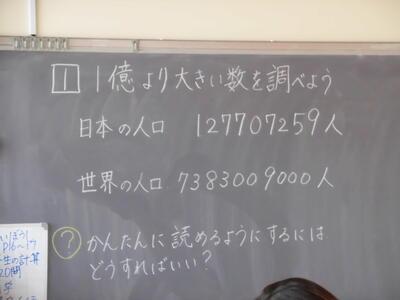 1 1億より大きい数を調べよう
日本の人口 127707259人
世界の人口 7383009000人
? かんたんに読めるようにするには
どうすればいい?
P16~17
の計算
20問